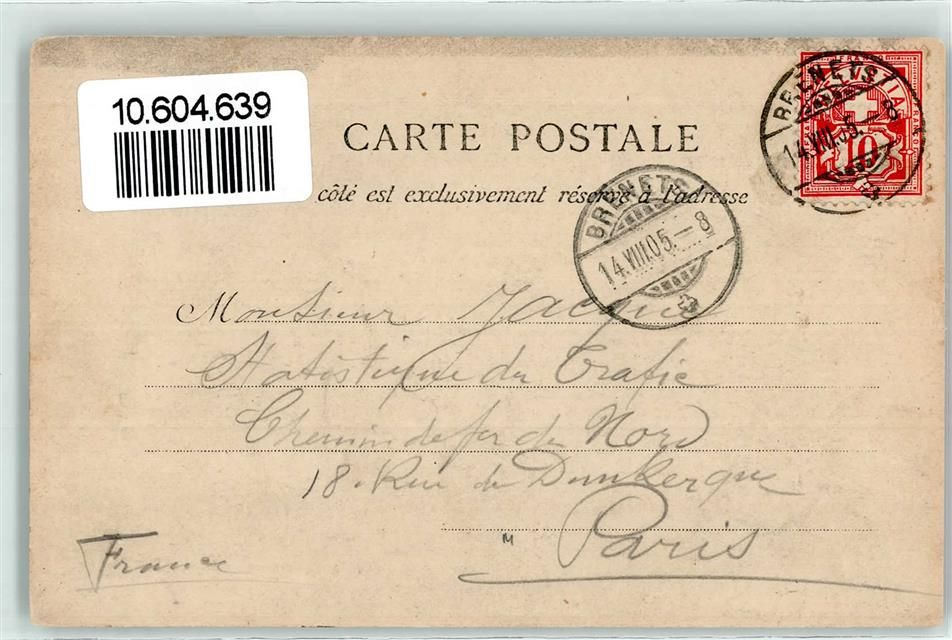 10.604.639
CARTE POSTALE
côté est exclusivement réservé à l'adresse
BRENETS
14.VIII.05.–8
10
BRENETS
14.VIII.05.–8
Monsieur Jacquis
Statistique du Trafic
Chemin de fer du Nord
18. Rue de Dunkerque
Paris
France